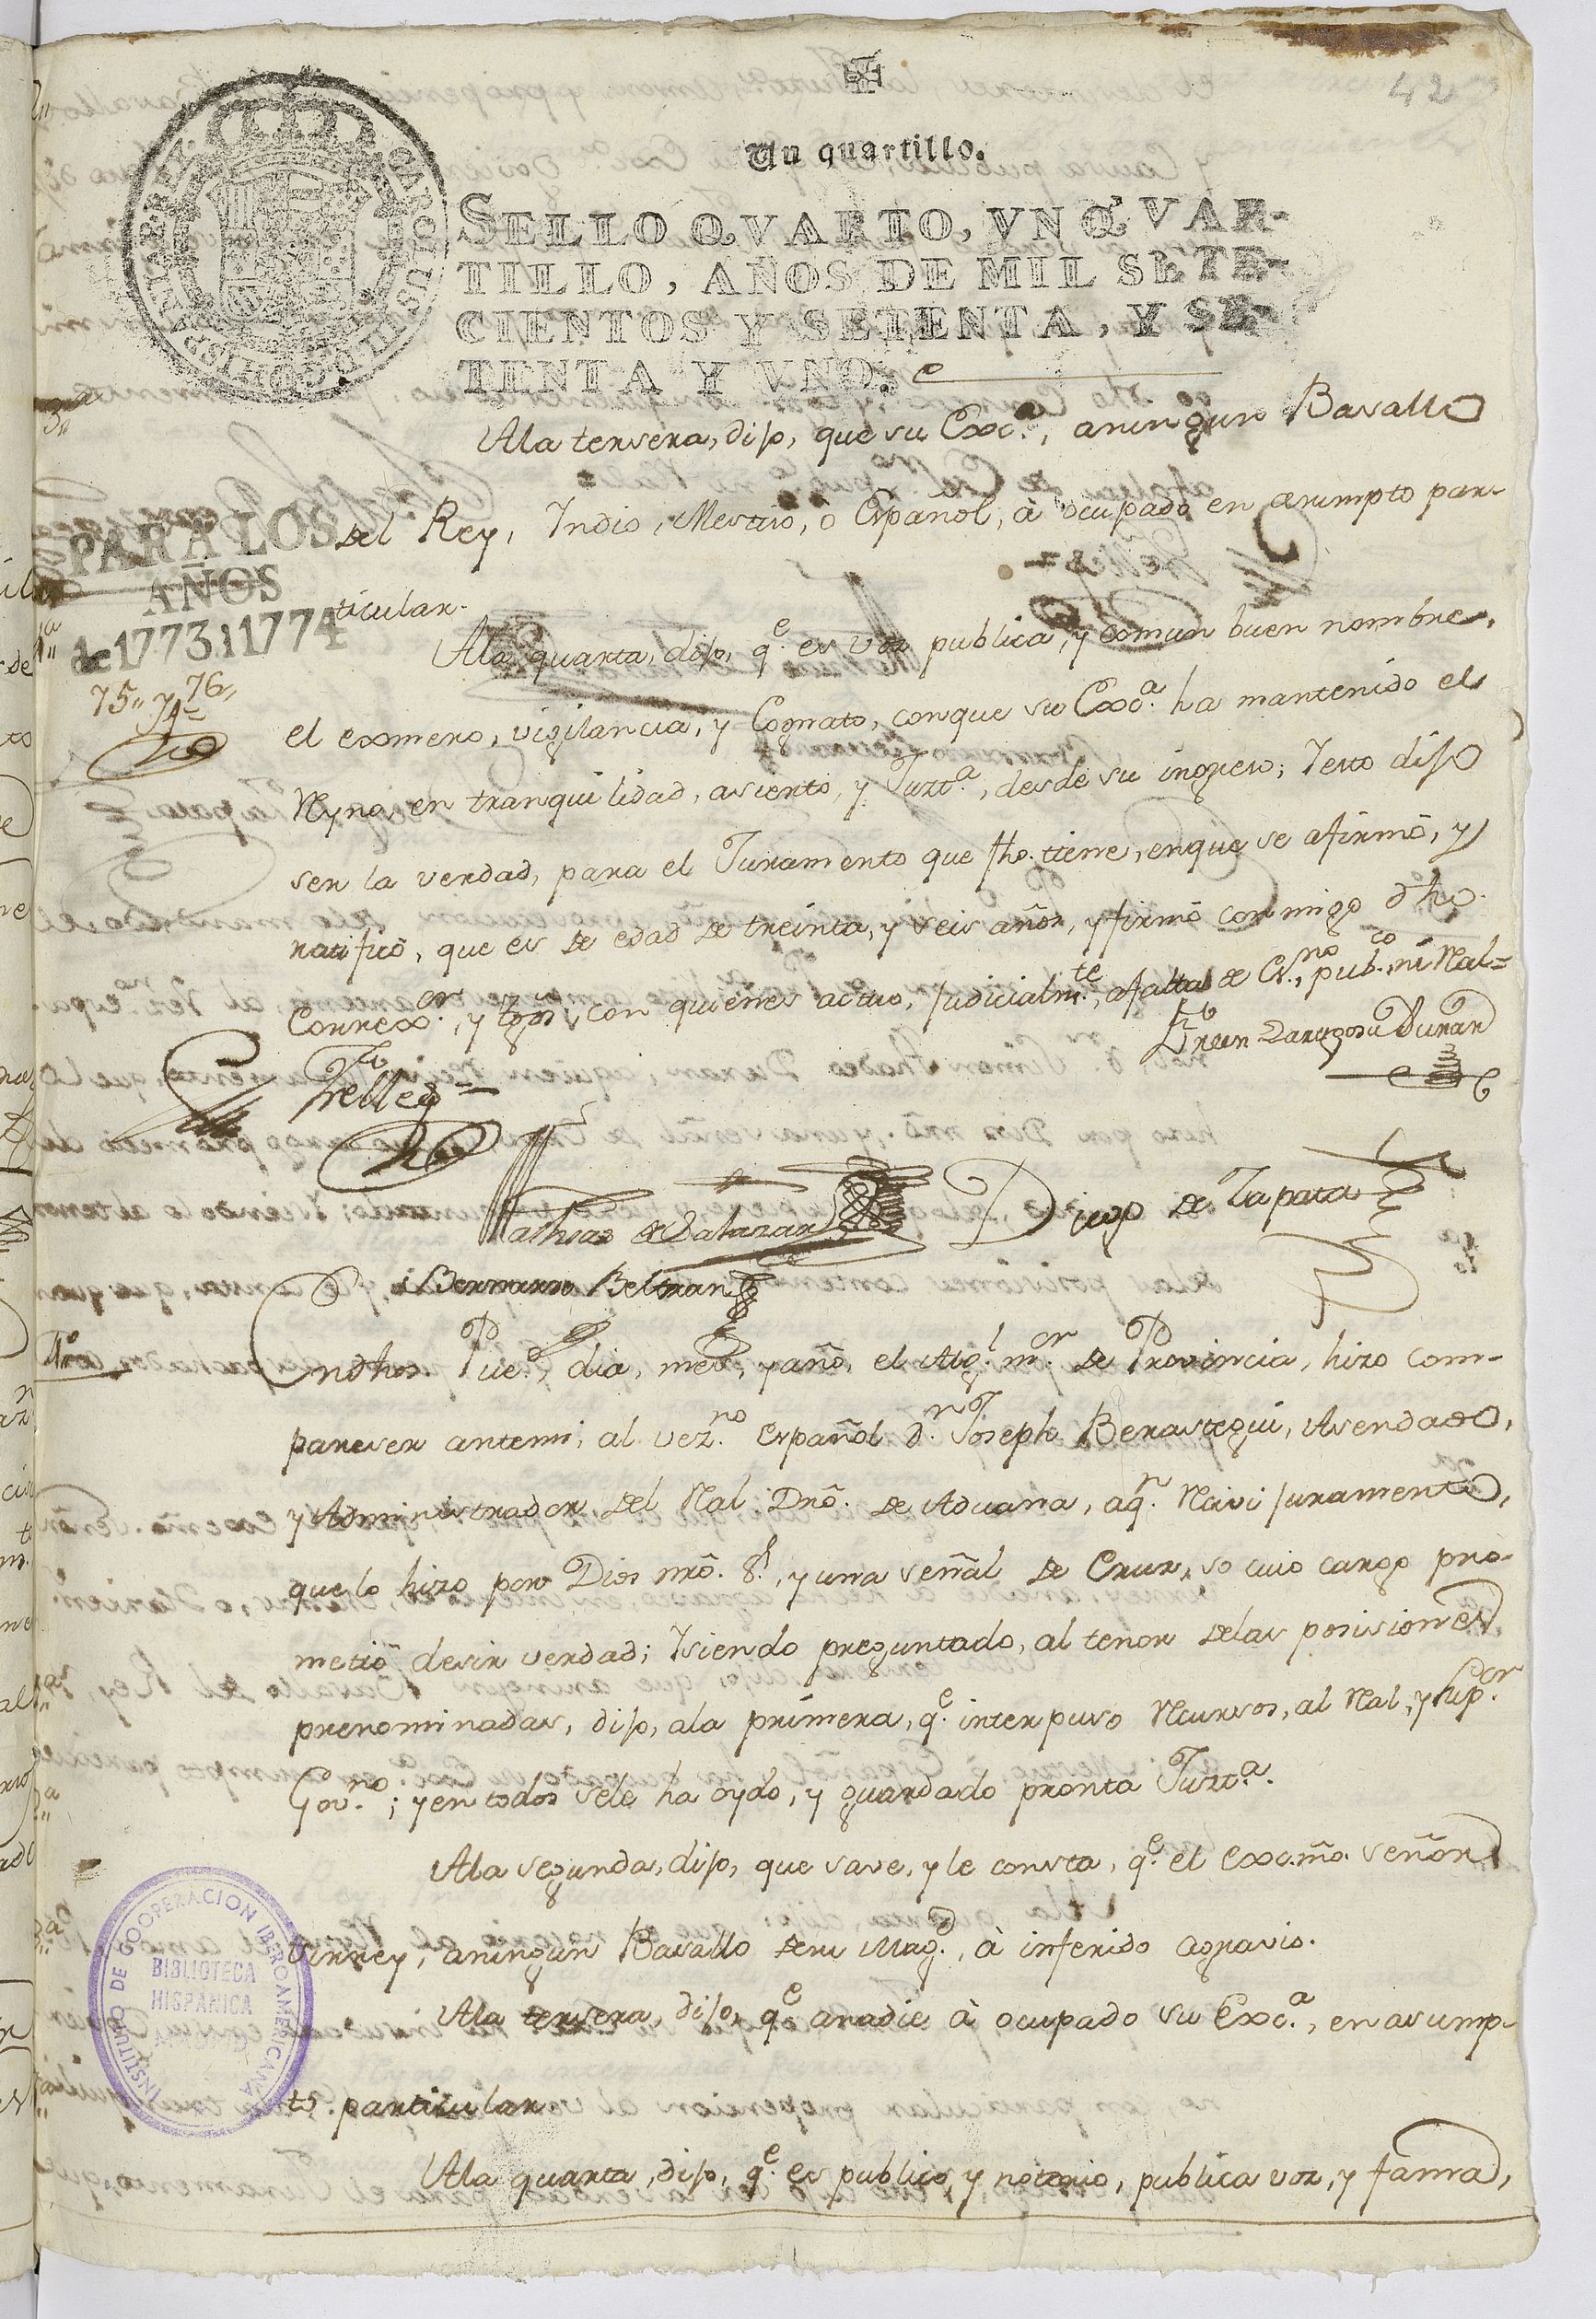 42
Un quartillo.
SELLO QVARTO, VN QVAR-
TILLO, AÑOS DE MIL SETE-
CIENTOS Y SETENTA, Y SE-
TENTA Y VNO.
3,,a
Ala tersera, dijo, que su Exc.a, aningun Basallo
del Rey, Indio, Mestiso, ò Español, à ocupado en asumpto par-
PARA LOS
AÑOS
de 1773 i 1774
ticular.
75,, y 76,,
Ala quarta, dijo, q.e es voz publica, y comun buen nombre,
el exmero, vigilancia, y Cognato, conque su Exc.a ha mantenido el
Reyno, en tranquilidad, asiento, y Juzt.a, desde su ingreso; Iesto dijo
ser la verdad, para el Juramento que fho. tiene, enque se afirmô, y
ratificô, que es de edad de treinta, y seis años, y firmô conmigo dho.
Correx.or, y tgos, con quienes actuo, judicialm.te, afalta de Es.no, pub.co, ni Ral=
Juan Zaragosa Duran
Telles
Mathias de Salazar
Diego de Zapata
Bernardo Beltran
4,,o
Endhos. Pue.o, dia, mes, y año, el Alg.l m.or de Provincia, hizo com-
pareser antemi, al vez.no Español d.n Joseph Berastegui, Asendado,
y Administrador del Ral Drô. de Aduana, aq.n Resivi juramento,
quelo hizo por Dios nrô. S.r, y una señal de Cruz, so cuio cargo pro-
metiô desir verdad; Isiendo preguntado, al tenor delas posisiones
prenominadas, dijo, ala primera, q.e interpuso Recursos, al Ral, y Sup.or
Gov.no; y en todos sele ha oydo, y guardado pronta Juzt.a.
Ala segunda, dijo, que save, y le consta, q.e el exc.mo señor
Virrey, aningun Basallo desu Mag.d, à inferido agravio.
Ala tersera, dijo, q.e anadie à ocupado su Exc.a, en asump-
to particular.
Ala quarta, dijo, q.e es publico, y notorio, publica voz, y fama,
INSTITUTO DE COOPERACION IBEROAMERICANA
BIBLIOTECA
HISPANICA